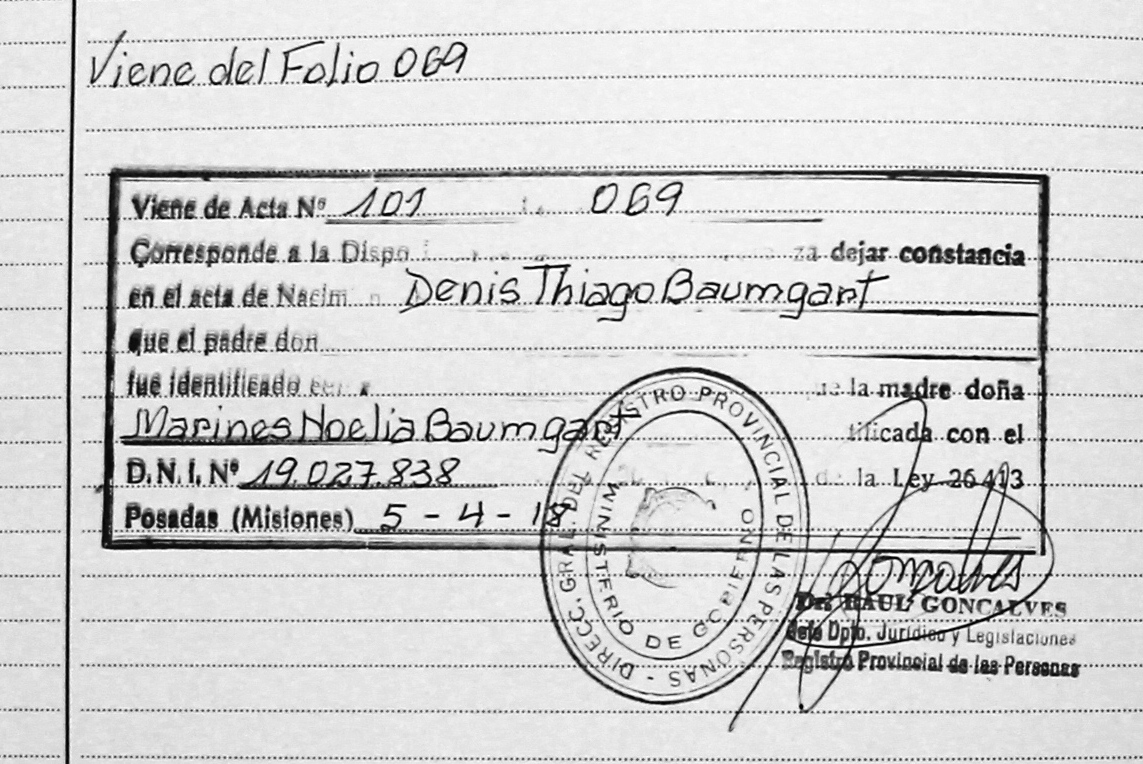 Viene del Folio 069
Viene de Acta Nº 101 069
Corresponde a la Dispo za dejar constancia
en el acta de Nacim Denis Thiago Baumgart
que el padre don
fue identificado la madre doña
Marines Noelia Baumgart tificada con el
D.N.I. Nº 19.027.838 de la Ley 26413
Posadas (Misiones) 5-4-18
DIRECC. GRAL. DEL REGISTRO PROVINCIAL DE LAS PERSONAS
MINISTERIO DE GOBIERNO
Goncalves
Dr. RAUL GONCALVES
Jefe Dpto. Jurídico y Legislaciones
Registro Provincial de las Personas